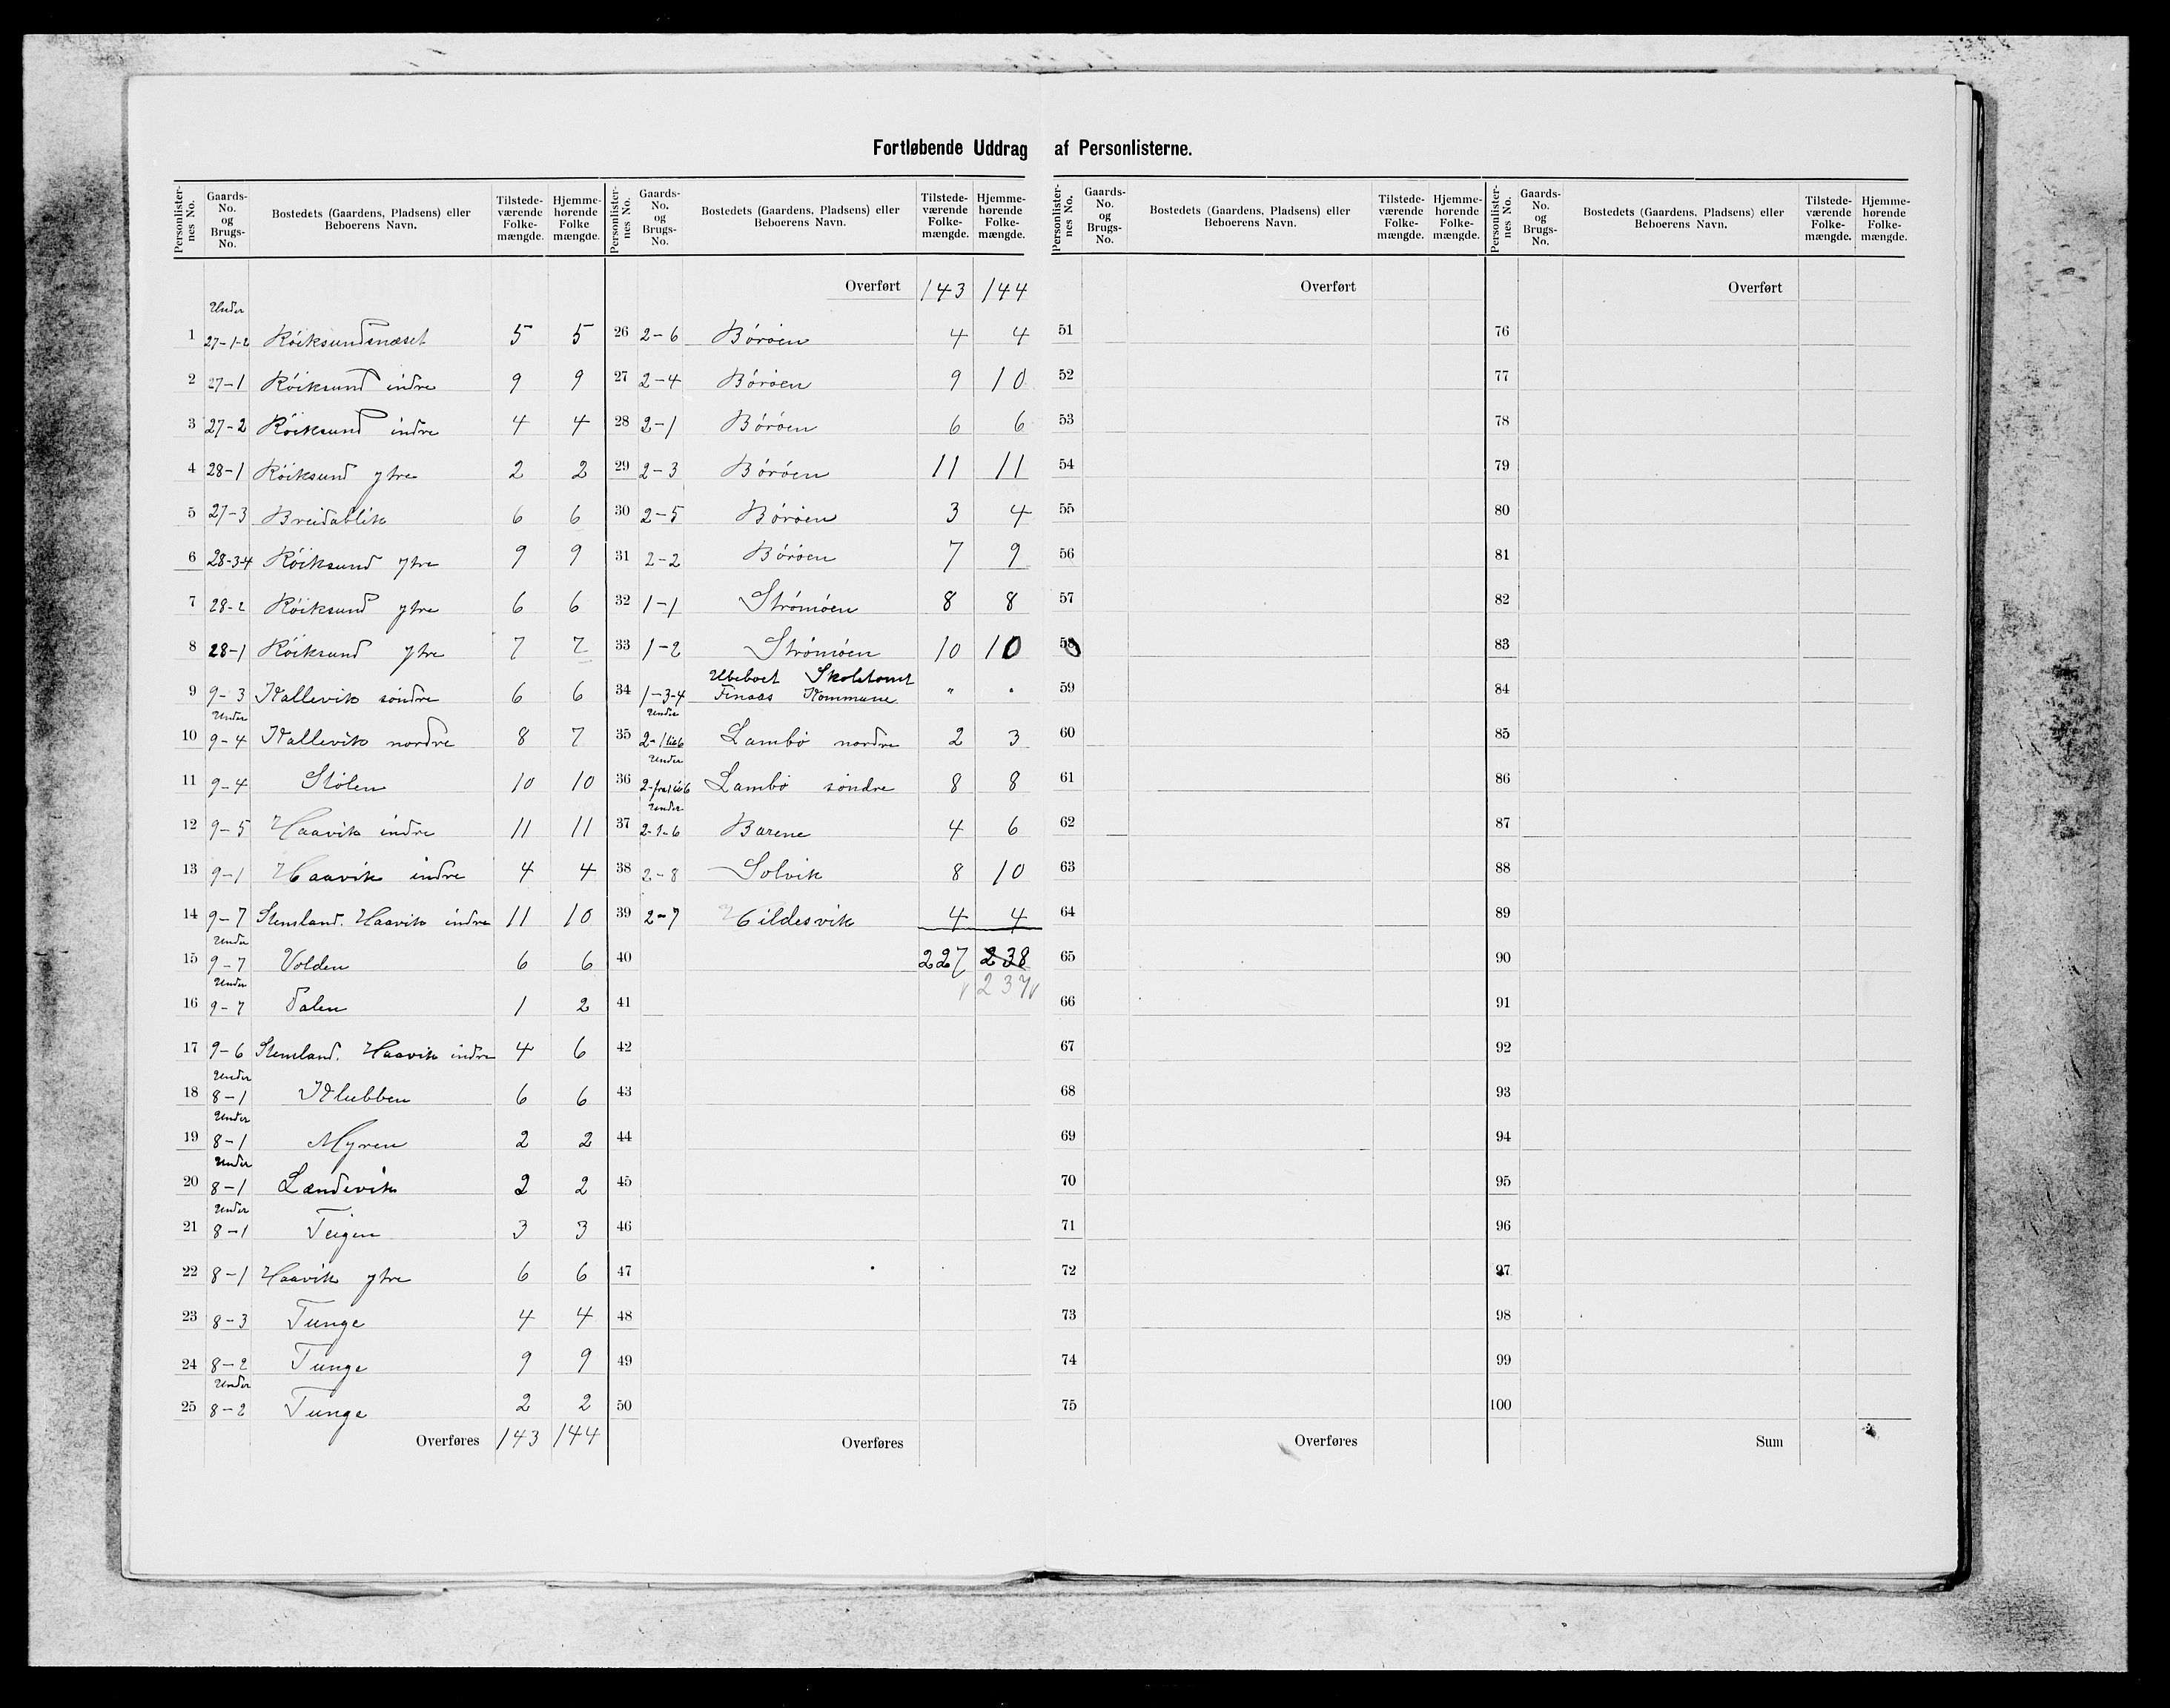 Fortløbende Uddrag af Personlisterne.
Personlister-nes No. Gaards-No. og Brugs-No. Bostedets (Gaardens, Pladsens) eller Beboerens Navn. Tilstede-værende Folke-mængde. Hjemme-hørende Folke mængde.
Personlister-nes No. Gaards-No. og Brugs-No. Bostedets (Gaardens, Pladsens) eller Beboerens Navn. Tilstede-værende Folke-mængde. Hjemme-hørende Folke-mængde.
Personlister-nes No. Gaards-No. og Brugs-No. Bostedets (Gaardens, Pladsens) eller Beboerens Navn. Tilstede-værende Folke-mængde. Hjemme-hørende Folke-mængde.
Personlister-nes No. Gaards-No. og Brugs-No. Bostedets (Gaardens, Pladsens) eller Beboerens Navn. Tilstede-værende Folke-mængde. Hjemme-hørende Folke-mængde.
Under
1 27-1-2 Röiksundsnæset 5 5
2 27-1 Röiksund indre 9 9
3 27-2 Röiksund indre 4 4
4 28-1 Röiksund ytre 2 2
5 27-3 Breidablik 6 6
6 28-3-4 Röiksund ytre 9 9
7 28-2 Röiksund ytre 6 6
8 28-1 Röiksund ytre 7 7
9 9-3 Kallevik søndre 6 6
Under
10 9-4 Kallevik nordre 8 7
11 9-4 Stølen 10 10
12 9-5 Haavik indre 11 11
13 9-1 Haavik indre 4 4
14 9-7 Stensland. Haavik indre 11 10
Under
15 9-7 Volden 6 6
Under
16 9-7 Dalen 1 2
17 9-6 Stensland. Haavik indre 4 6
Under
18 8-1 Klubben 6 6
Under
19 8-1 Myren 2 2
Under
20 8-1 Landevik 2 2
Under
21 8-1 Teigen 3 3
22 8-1 Haavik ytre 6 6
23 8-3 Tunge 4 4
24 8-2 Tunge 9 9
Under
25 8-2 Tunge 2 2
Overføres 143 144
Overført 143 144
26 2-6 Böröen 4 4
27 2-4 Böröen 9 10
28 2-1 Böröen 6 6
29 2-3 Böröen 11 11
30 2-5 Böröen 3 4
31 2-2 Böröen 7 9
32 1-1 Strömöen 8 8
33 1-2 Strömöen 10 10
Ubeboet Skoletomt
34 1-3-4 Finaas Kommune " "
Under
35 2-1 til 6 Lambö nordre 2 3
Under
36 2-fra 1 til 6 Lambö søndre 8 8
Under
37 2-1-6 Barene 4 6
38 2-8 Solvik 8 10
39 2-7 Hildesvik 4 4
40 227 238
41 237
42
43
44
45
46
47
48
49
50
Overføres
Overført
51
52
53
54
55
56
57
58
59
60
61
62
63
64
65
66
67
68
69
70
71
72
73
74
75
Overføres
Overført
76
77
78
79
80
81
82
83
84
85
86
87
88
89
90
91
92
93
94
95
96
97
98
99
100
Sum